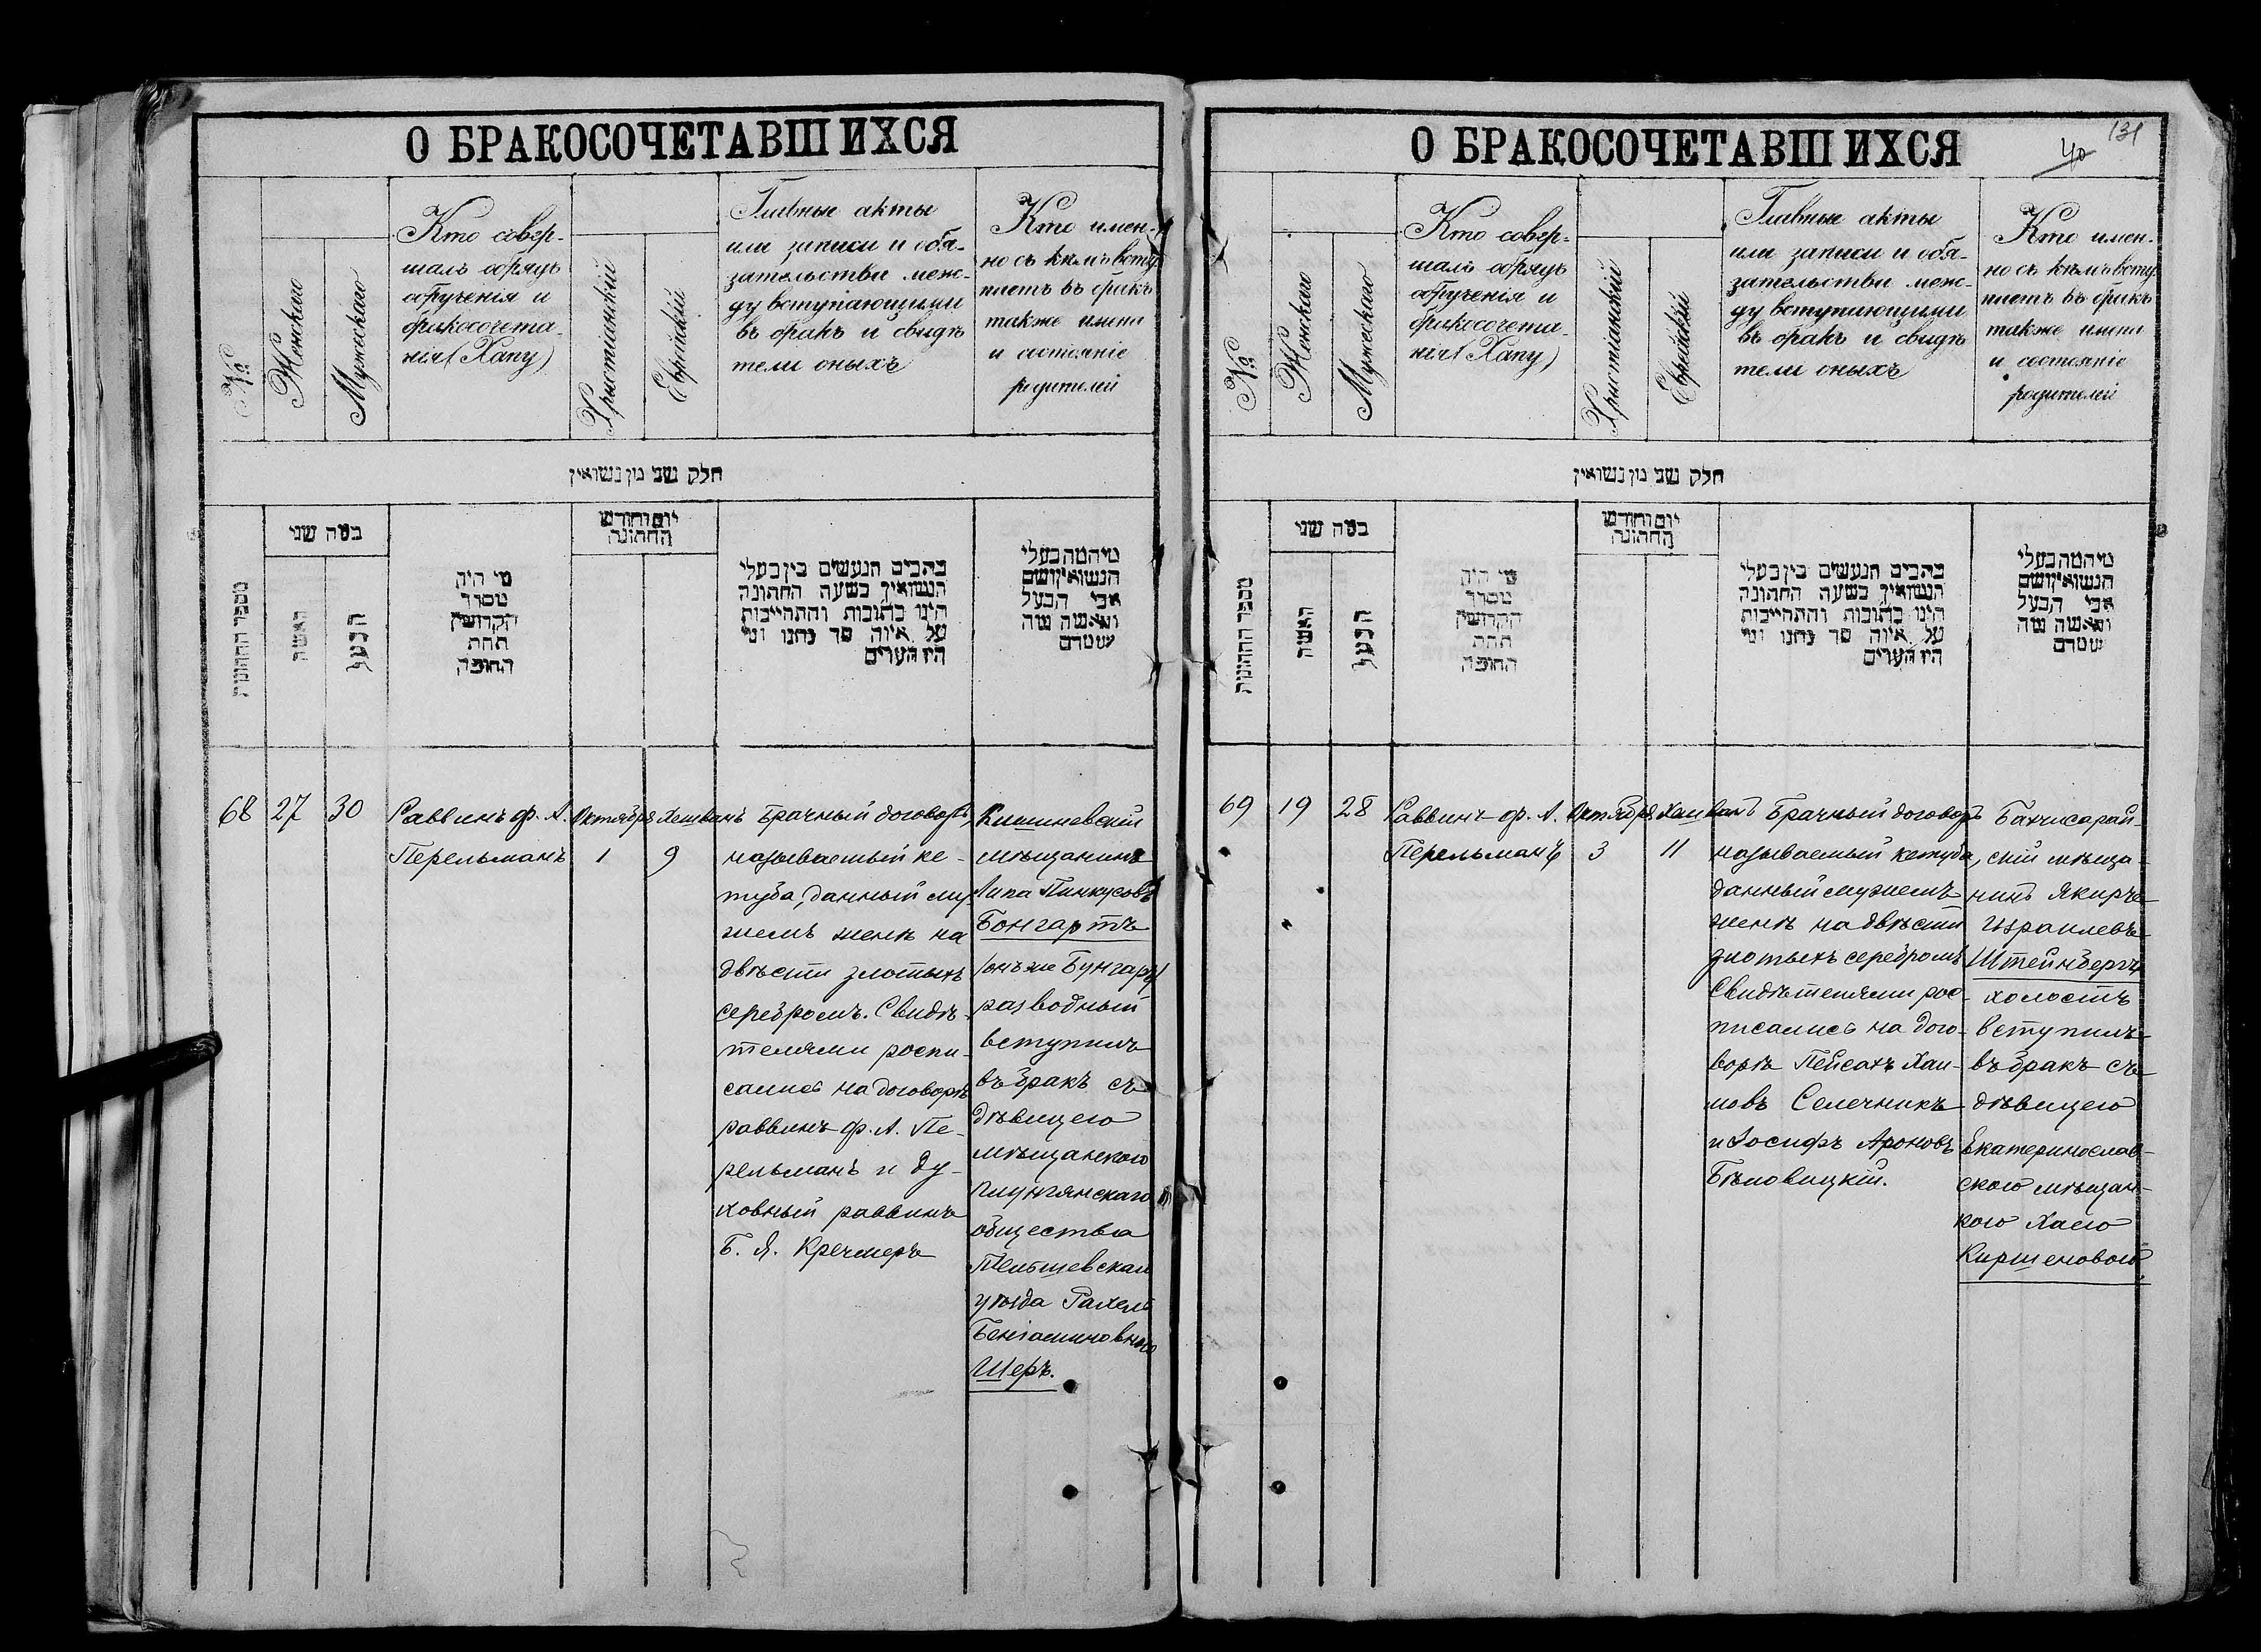 О БРАКОСОЧЕТАВШИХСЯ
№
Женскаго
Мужескаго
Кто совер-
шалъ обрядъ
обрученія и
бракосочета-
нія (Хапу)
Христіанскій
Еврейскій
Главные акты
или записи и обя-
зательства меж-
ду вступающими
въ бракъ и свидѣ
тели оныхъ
Кто имен-
но съ кѣмъ всту
паетъ въ бракъ
также имена
и состояніе
родителей
חלק שני מן נשואין
מספר החתונות
כמה שני
האשה
הבעל
מי היה
מסדר
הקדושין
תחת
החופה
יום וחודש
החתונה
כתבים הנעשים בין בעלי
הנשואין בשעה החתונה
היינו כתובות והתחייבות
על איזה סך נתנו ומי
היו העדים
מי המה בעלי
הנשואין ושם
אבי הבעל
והאשה ומה
68 27 30
Раввинъ ф. А.
Перельманъ
Октября
1
Хешванъ
9
Брачный договоръ,
называемый ке-
туба, данный му-
жемъ женѣ на
двѣсти злотыхъ
серебромъ. Свидѣ-
телями роспи-
сались на договорѣ
раввинъ ф. А. Пе-
рельманъ и ду-
ховный раввинъ
Б. Я. Кречмеръ
Кишиневскій
мѣщанинъ
Липа Пинкусовъ
Бонгартъ
/онъ же Бунгартъ/
разводный
вступилъ
въ бракъ съ
дѣвицею
мѣщанкою
Плунгянскаго
общества
Тельшевскаго
уѣзда Рахелъ
Беніаминовною
Шеръ.
О БРАКОСОЧЕТАВШИХСЯ
40
131
№
Женскаго
Мужескаго
Кто совер-
шалъ обрядъ
обрученія и
бракосочета-
нія (Хапу)
Христіанскій
Еврейскій
Главные акты
или записи и обя-
зательства меж-
ду вступающими
въ бракъ и свидѣ
тели оныхъ
Кто имен-
но съ кѣмъ всту
паетъ въ бракъ
также имена
и состояніе
родителей
חלק שני מן נשואין
מספר החתונות
כמה שני
האשה
הבעל
מי היה
מסדר
הקדושין
תחת
החופה
יום וחודש
החתונה
כתבים הנעשים בין בעלי
הנשואין בשעה החתונה
היינו כתובות והתחייבות
על איזה סך נתנו ומי
היו העדים
מי המה בעלי
הנשואין ושם
אבי הבעל
והאשה ומה
69 19 28
Раввинъ ф. А.
Перельманъ
Октября
3
Хешванъ
11
Брачный договоръ
называемый кетуба,
данный мужемъ
женѣ на двѣсти
злотыхъ серебромъ
Свидѣтелями рос-
писались на дого-
ворѣ Пейсахъ Хаи-
мовъ Селечникъ
и Іосифъ Ароновъ
Бѣловицкій.
Бахчисарай-
скій мѣща-
нинъ Якиръ
Израилевъ
Штейнбергъ
холостъ
вступилъ
въ бракъ съ
дѣвицею
Екатеринослав-
скою мѣщан-
кою Хаею
Киршеновою.